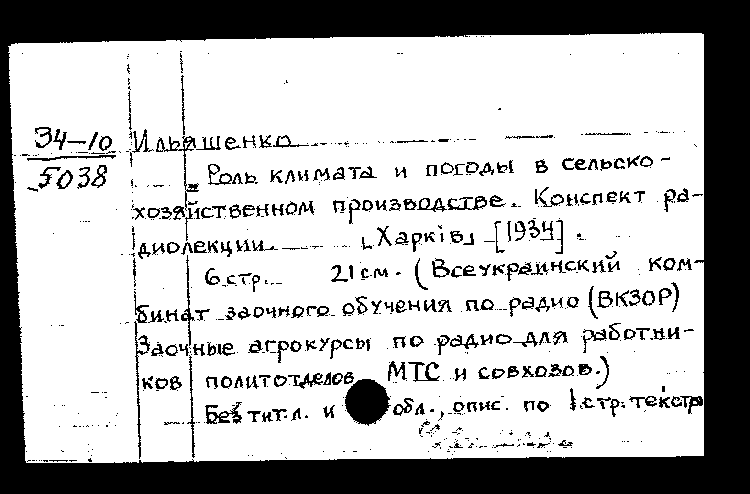 34-10 Ильяшенко
5038 Роль климата и погоды в сельско-
хозяйственном производстве. Конспект ра-
диолекции. [Харків] [1934].
6 стр. 21 см. (Всеукраинский ком-
бинат заочного обучения по радио (ВКЗОР)
Заочные агрокурсы по радио для работни-
ков политотделов МТС и совхозов.)
Без тит. л. и обл., опис. по 1 стр. текста